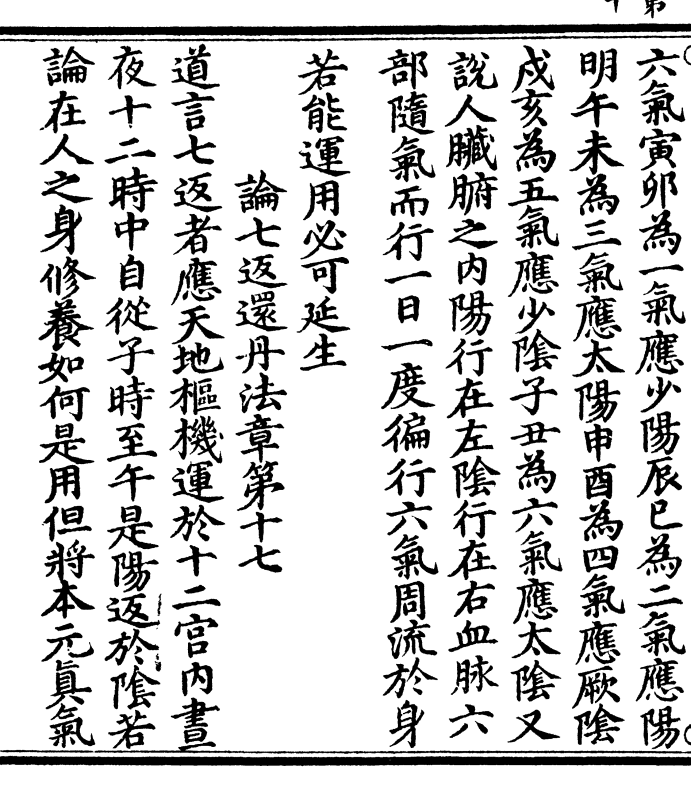 六氣寅卯為一氣應少陽辰巳為二氣應陽
明午未為三氣應太陽申酉為四氣應厥陰
戍亥為五氣應少陰子丑為六氣應太陰又
說人臟腑之內陽行在左陰行在右血脉六
部隨氣而行一日一度徧行六氣周流於身
若能運用必可延生
論七返還丹法章第十七
道言七返者應天地樞機運於十二宮內晝
夜十二時中自從子時至午是陽返於陰若
論在人之身修養如何是用但將本元真氣